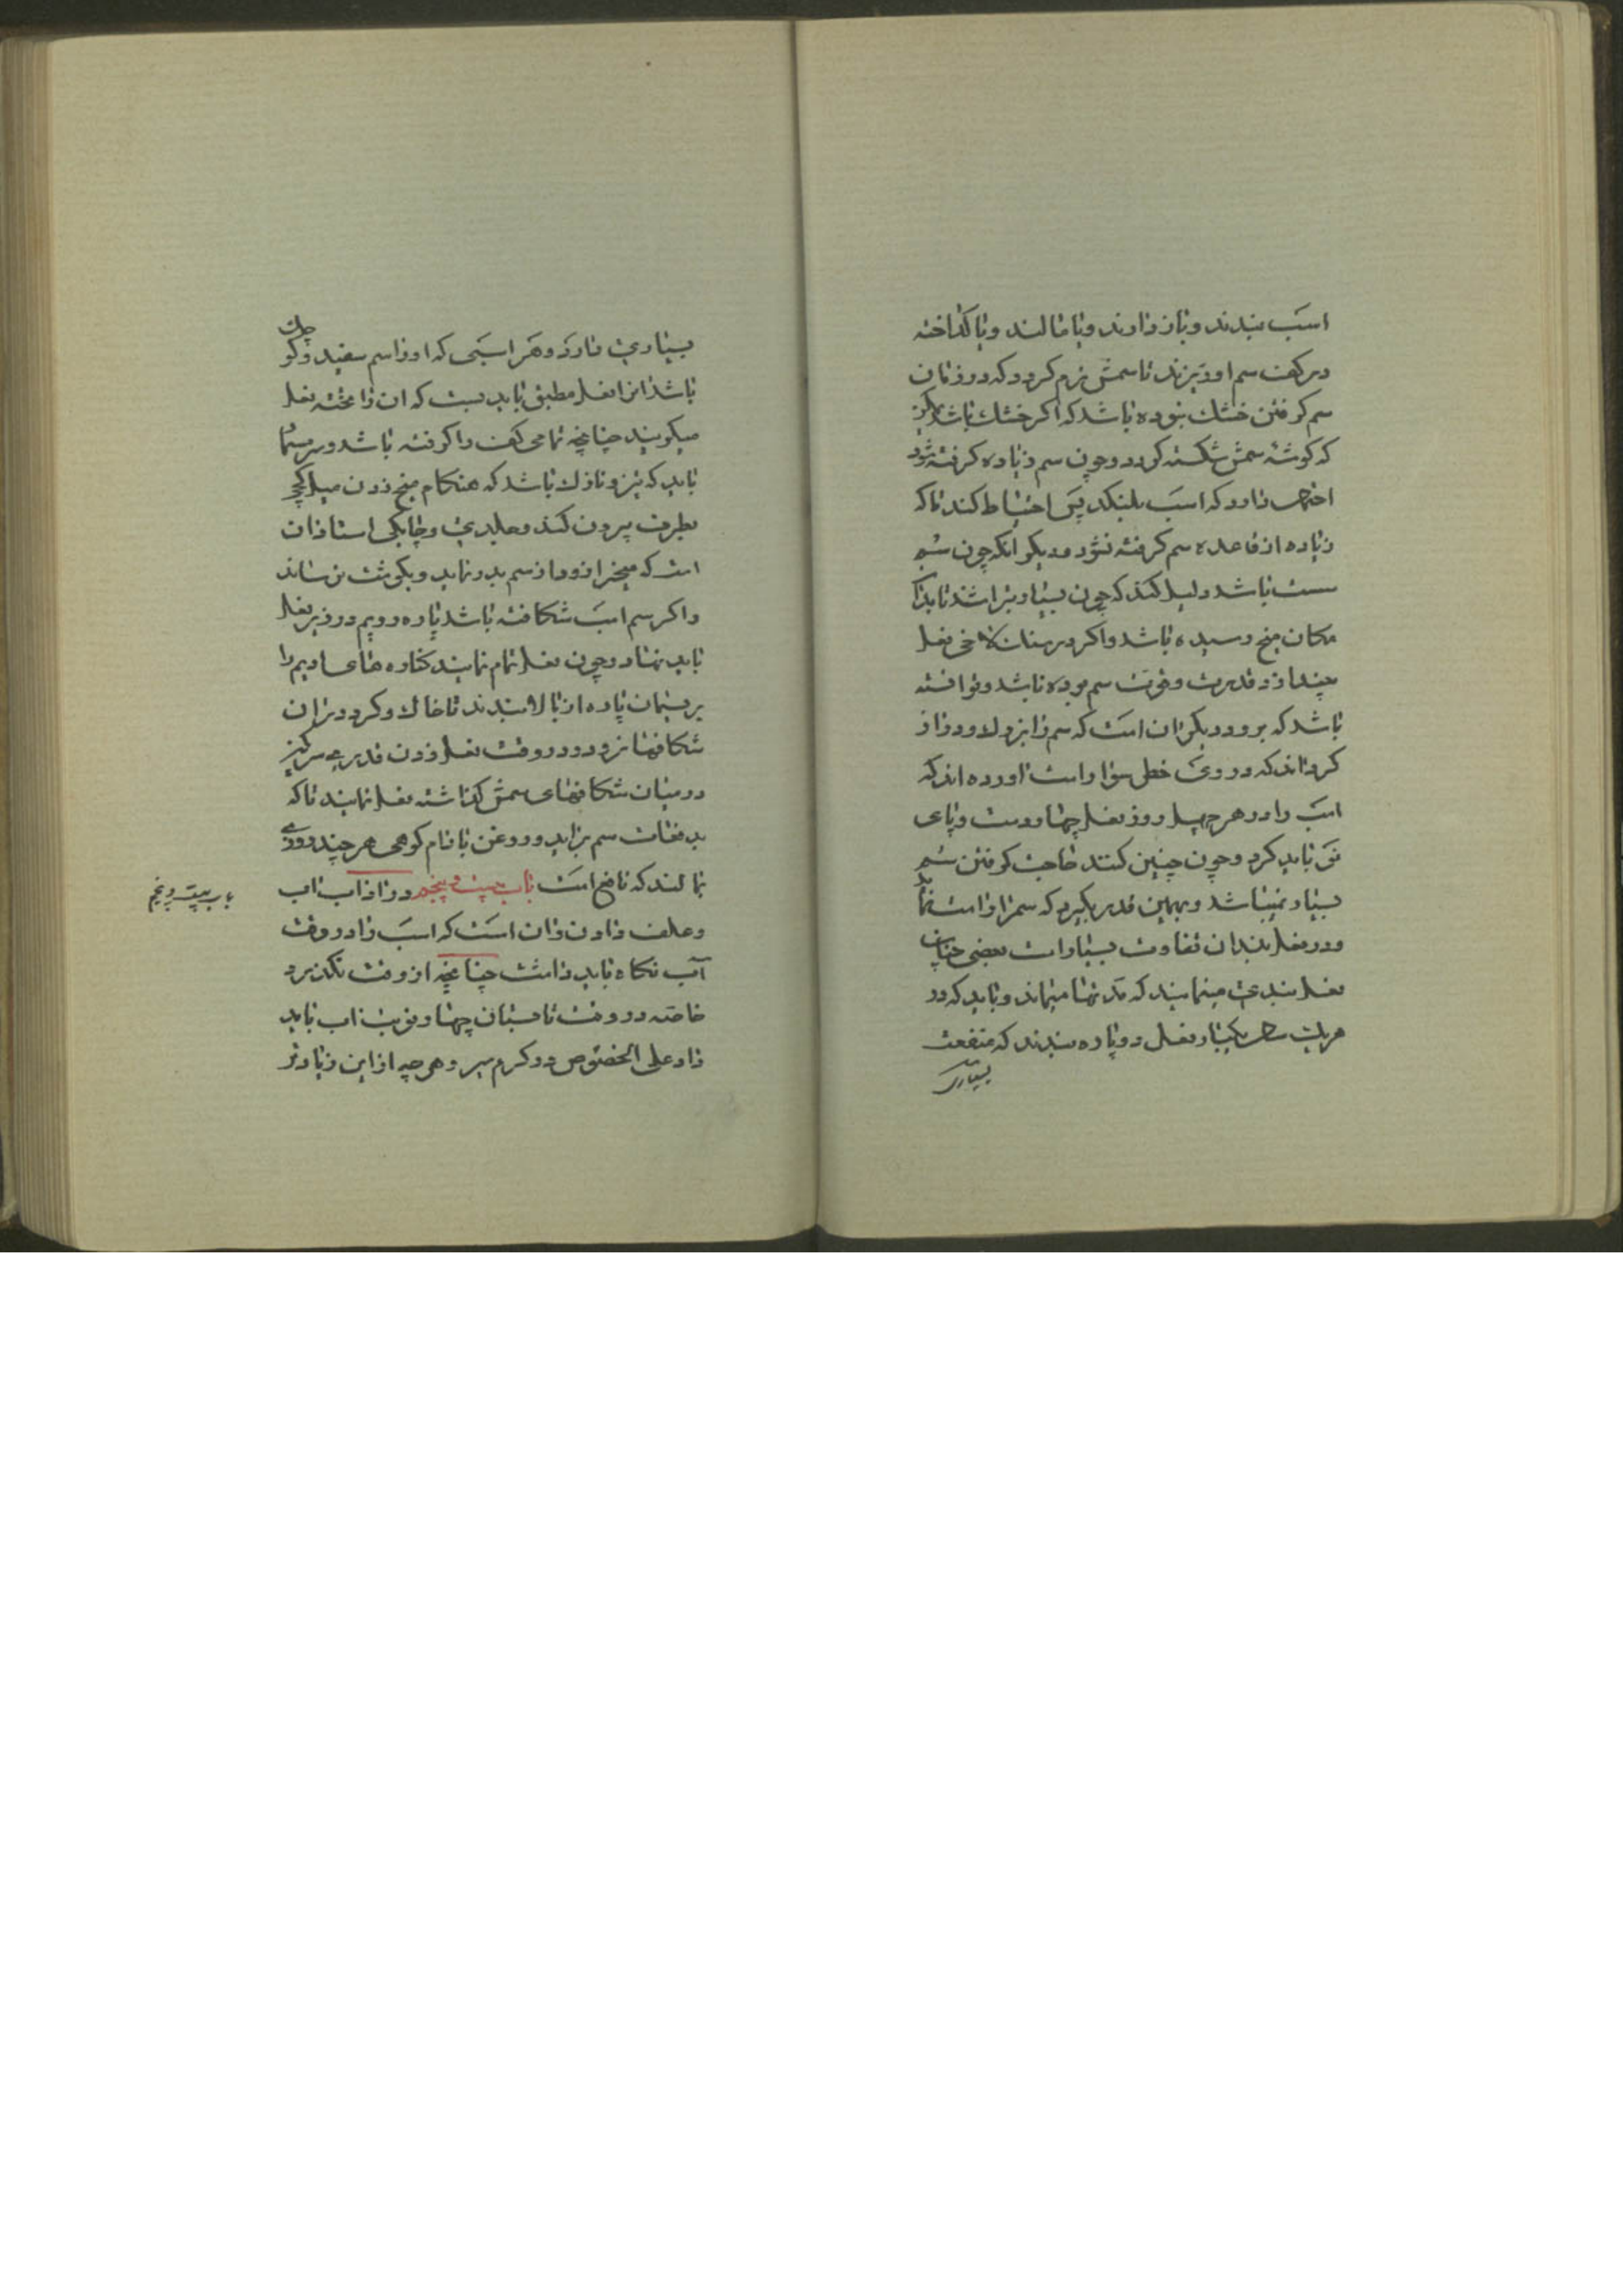 اسب بندند و باز دارند و یا مالند و یا کداخته
در کف سم او ریزند تا سمش نرم کردد که در زمان
سم کرفتن خشك نبوده باشد که اکر خشك باشد
که کوشۀ سمش شکسته کردد و چون سم زیاده کرفته شود
دارد که اسب بلنکد پس احتیاط کند تا که
زیاده از قاعده سم کرفته نشود و دیکر آنکه چون سم
سست باشد دلیل کند که چون بسیار بتراشند
مکان میخ رسیده باشد و اکر در نعل
قدرت و قوت سم بوده باشد و توانسته
باشد که برود دیکر آن است که سم را
کرده‌اند که در وی خطل سوار است آورده اند که
اسب را در هر چهل روز نعل چهار دست و پای
نو باید کرد و چون چنین کنند حاجت کرفتن سم
بسیار نمیباشد و همین قدر بکیرد که سم را راست نماید
و در نعلبندان تفاوت بسیار است بعضی چنان
نعل بندی مینمایند که مدتها میماند و باید که در
هریك ماه یکبار نعل دوباره بندند که منفعت
بسیاری
بسیاری دارد و هر اسبی که او را سم سفید و کوچك
باشد او را نعل مطبق باید بست که آن را تخته نعل
میکویند چنانچه تمامی کف را کرفته باشد و سر
باید که تیز و نازك باشد که هنکام میخ زدن میل کج
بطرف بیرون کند و جلدی و چابکی استادان
است که میخ را زود از سم بدر نماید و بکوشت نرساند
و اکر سم اسب شکافته باشد پاره در زیر نعل
باید نهاد و چون نعل تمام نمایند کناره های ادیم را
بریسمان پاره از بالا بندند تا خاك و کرد در آن
شکافها نرود و در وقت نعل زدن قدری سرکین
در میان شکافهای سمش کذاشته نعل نمایند تا که
بدفعات سم برآید و روغن بادام کوهی هر چند روزی
بمالند که نافع است باب بیست و پنجم در آداب آب
و علف دادن دان است که اسب را در وقت
آب نکاه باید داشت چنانچه از وقت نکذرد
خاصه در وقت تابستان چهار نوبت آب باید
داد علی الخصوص در کرم سیر و هر چه از این زیادتر
باب بیست و پنجم